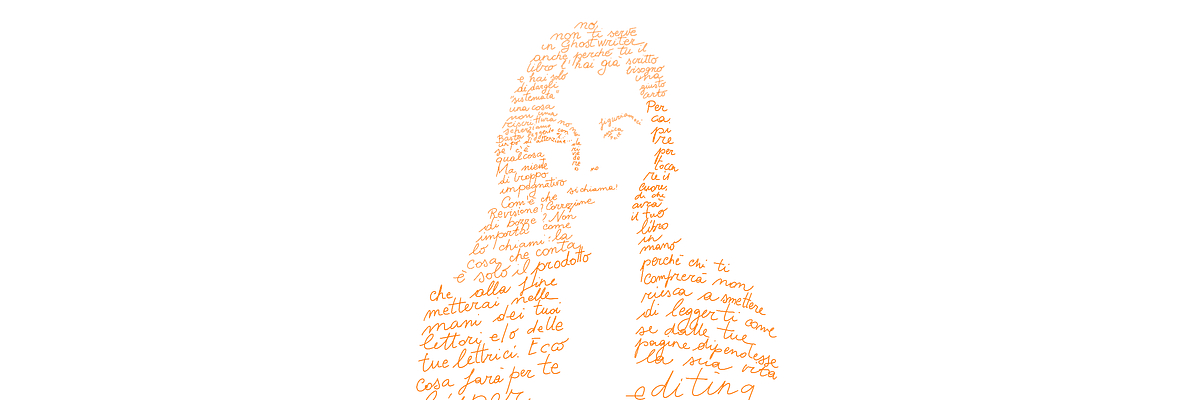 no,
non ti serve
un ghostwriter
anche perché tu il
libro l'hai già scritto
e hai solo
bisogno
di dargli
una
"sistemata"
giusto
una cosa
arto
non una
riscrittura
scherziamo
Basta
se c'è
qualcosa
Ma niente
di troppo
impegnativo
Com'è che si chiama?
Revisione? Correzione
di bozze? Non
importa come
lo chiami: la
cosa che conta,
è solo il prodotto
che alla fine
metterai nelle
mani dei tuoi
lettori e/o delle
tue lettrici. Ecco
cosa farà per te
Per
ca,
pi
re
per
tocca
re il
cuore
di chi
avrà
il tuo
libro
in
mano
perché chi ti
comprerà non
riesca a smettere
di leggerti come
se dalle tue
pagine dipendesse
la sua vita
editing